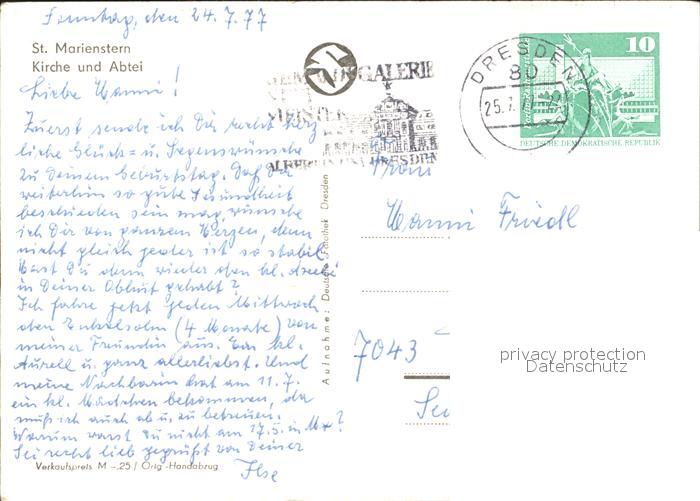 Sonntag, den 24.7.77
St. Marienstern
Kirche und Abtei
Liebe Hanni!
Zuerst sende ich Dir recht herz
liche Glück- u. Segenswünsche
zu Deinem Geburtstag. Daß Dir
weiterhin so gute Gesundheit
beschieden sein mag, wünsche
ich Dir von ganzem Herzen, denn
nicht gleich jeder ist so stabil.
Hast Du denn wieder den kl.
in Deiner Obhut gehabt?
Ich fahre jetzt jeden Mittwoch
den Enkelsohn (4 Monate) von
meiner Freundin aus. Ein kl.
Aurell u. ganz allerliebst. Und
meine Nachbarin hat am 11.7.
ein kl. Mädchen bekommen, da
muß ich auch ab u. zu betreuen.
Warum warst Du nicht am 17.5. in
Sei recht lieb gegrüßt von Deiner
Ilse
Verkaufspreis M -,25 / Orig.-Handabzug
Aufnahme: Deutsche Fotothek Dresden
GALERIE
MEISTER
ALBERTINUM DRESDEN
DRESDEN
80
25.7.
10
DEUTSCHE DEMOKRATISCHE REPUBLIK
Frau
Hanni Friedl
7043
privacy protection
Datenschutz